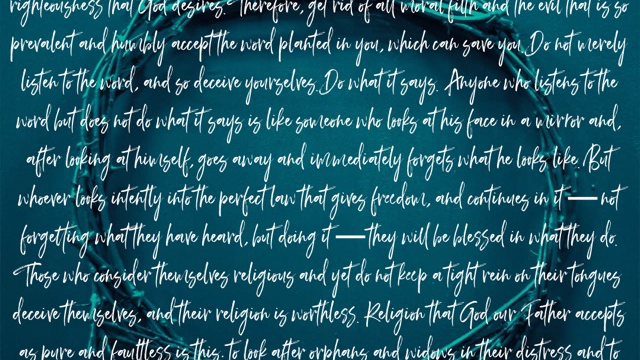 righteousness that God desires. Therefore, get rid of all moral filth and the evil that is so
prevalent and humbly accept the word planted in you, which can save you. Do not merely
listen to the word, and so deceive yourselves. Do what it says. Anyone who listens to the
word but does not do what it says is like someone who looks at his face in a mirror and,
after looking at himself, goes away and immediately forgets what he looks like. But
whoever looks intently into the perfect law that gives freedom, and continues in it — not
forgetting what they have heard, but doing it — they will be blessed in what they do.
Those who consider themselves religious and yet do not keep a tight rein on their tongues
deceive themselves, and their religion is worthless. Religion that God our Father accepts
as pure and faultless is this: to look after orphans and widows in their distress and to